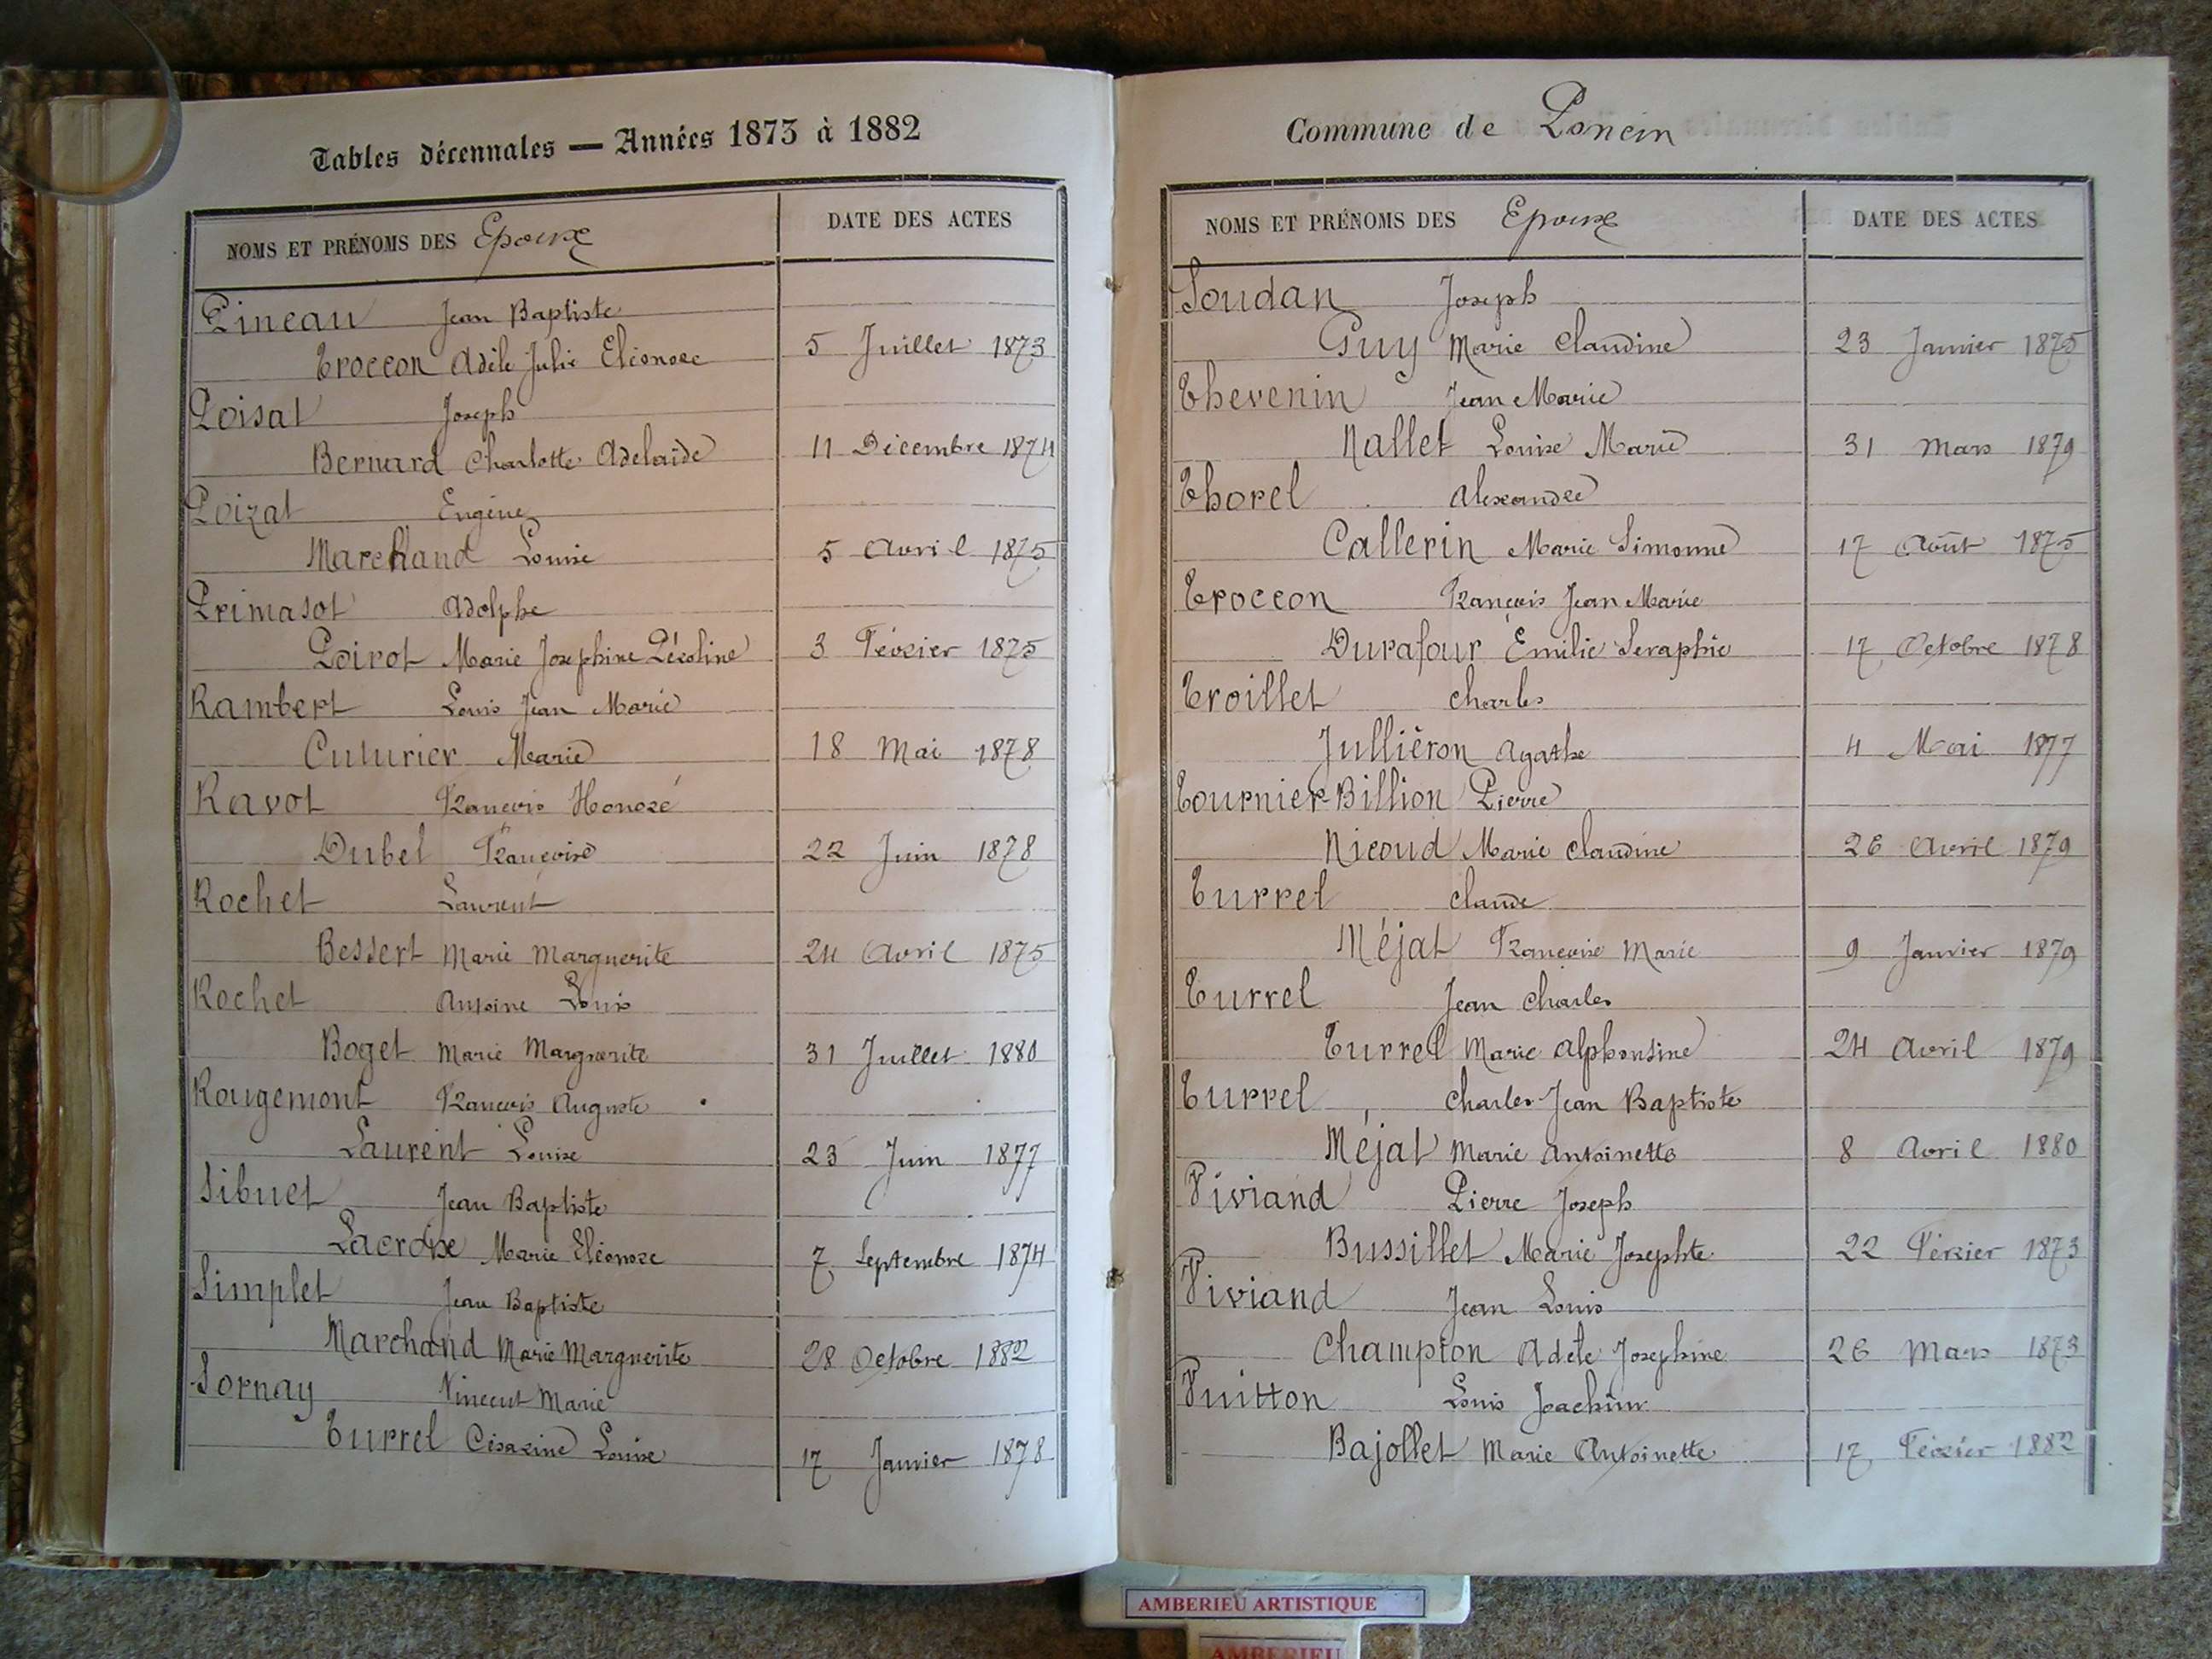 Tables décennales — Années 1873 à 1882
NOMS ET PRÉNOMS DES Epoux DATE DES ACTES
Pineau Jean Baptiste
Troccon Adèle Julie Eléonore 5 Juillet 1873
Poisat Joseph
Bernard Charlotte Adelaïde 11 Décembre 1874
Poizat Eugène
Marchand Louise 5 Avril 1875
Primasot Adolphe
Poirot Marie Josephine Péroline 3 Février 1875
Rambert Louis Jean Marie
Cuturier Marie 18 Mai 1878
Ravot François Honoré
Dubel Françoise 22 Juin 1878
Rochet Laurent
Bessert Marie Marguerite 24 Avril 1875
Rochet Antoine Louis
Boget Marie Marguerite 31 Juillet 1880
Rougemont François Auguste
Laurent Louise 23 Juin 1877
Sibuet Jean Baptiste
Lacroix Marie Eléonore 7 Septembre 1874
Simplet Jean Baptiste
Marchand Marie Marguerite 28 Octobre 1882
Sornay Vincent Marie
Turrel Césarine Louise 17 Janvier 1878
Commune de Poncin
NOMS ET PRÉNOMS DES Epoux DATE DES ACTES
Soudan Joseph
Guy Marie Claudine 23 Janvier 1875
Thevenin Jean Marie
Nallet Louise Marie 31 Mars 1879
Thorel Alexandre
Callerin Marie Simonne 17 Août 1875
Troccon François Jean Marie
Durafour Emilie Seraphie 17 Octobre 1878
Troillet Charles
Julliéron Agathe 4 Mai 1877
Tournier-Billion Pierre
Nicoud Marie Claudine 26 Avril 1879
Turrel Claude
Méjat Françoise Marie 9 Janvier 1879
Turrel Jean Charles
Turrel Marie Alphonsine 24 Avril 1879
Turrel Charles Jean Baptiste
Méjat Marie Antoinette 8 Avril 1880
Viviand Pierre Joseph
Bussillet Marie Josephte 22 Février 1873
Viviand Jean Louis
Champion Adèle Josephine 26 Mars 1873
Vuitton Louis Joachim
Bajollet Marie Antoinette 17 Février 1882
AMBERIEU ARTISTIQUE
AMBERIEU